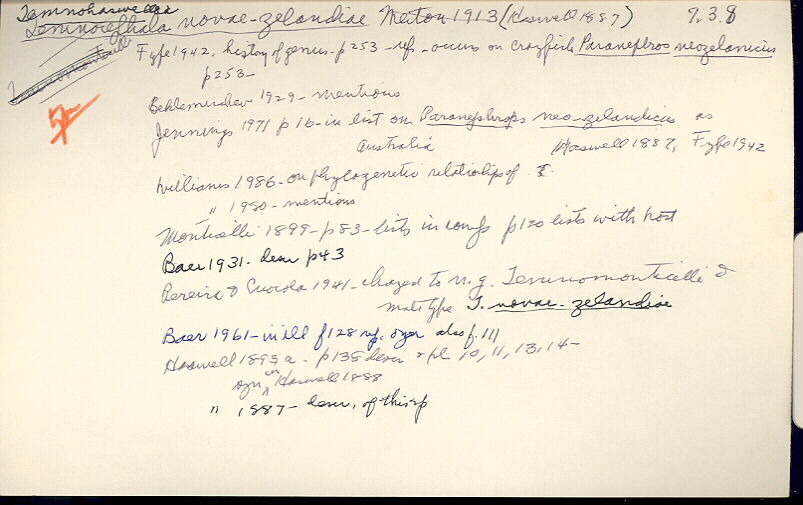 Temnohaswellae
Temnocephala novae-zelandiae Merton 1913 (Haswell 1887) 7.3.8
Fyfe 1942, history of genus - p 253 - ref - occurs on crayfish Paranephros neozelanicus
p 253 -
Beklemishev 1929 - mentions
Jennings 1971 p 16 - in list on Paranephrops neo-zelandicus as
Australia Haswell 1887, Fyfe 1942
Williams 1986 - on phylogenetic relationships of T.
" 1980 - mentions
Monticelli 1899 - p 83 - lists in p 120 lists with host
Baer 1931 - descr p 43
Pereira & Cuocolo 1941 - changed to n.g. Temnomonticelli &
made type T. novae-zelandiae
Baer 1961 - in ill f 128 rep. also f. 111
Haswell 1893 a - p 138 descr & pl 10, 11, 13, 14 -
syn Haswell 1888
" 1887 - descr. of this sp